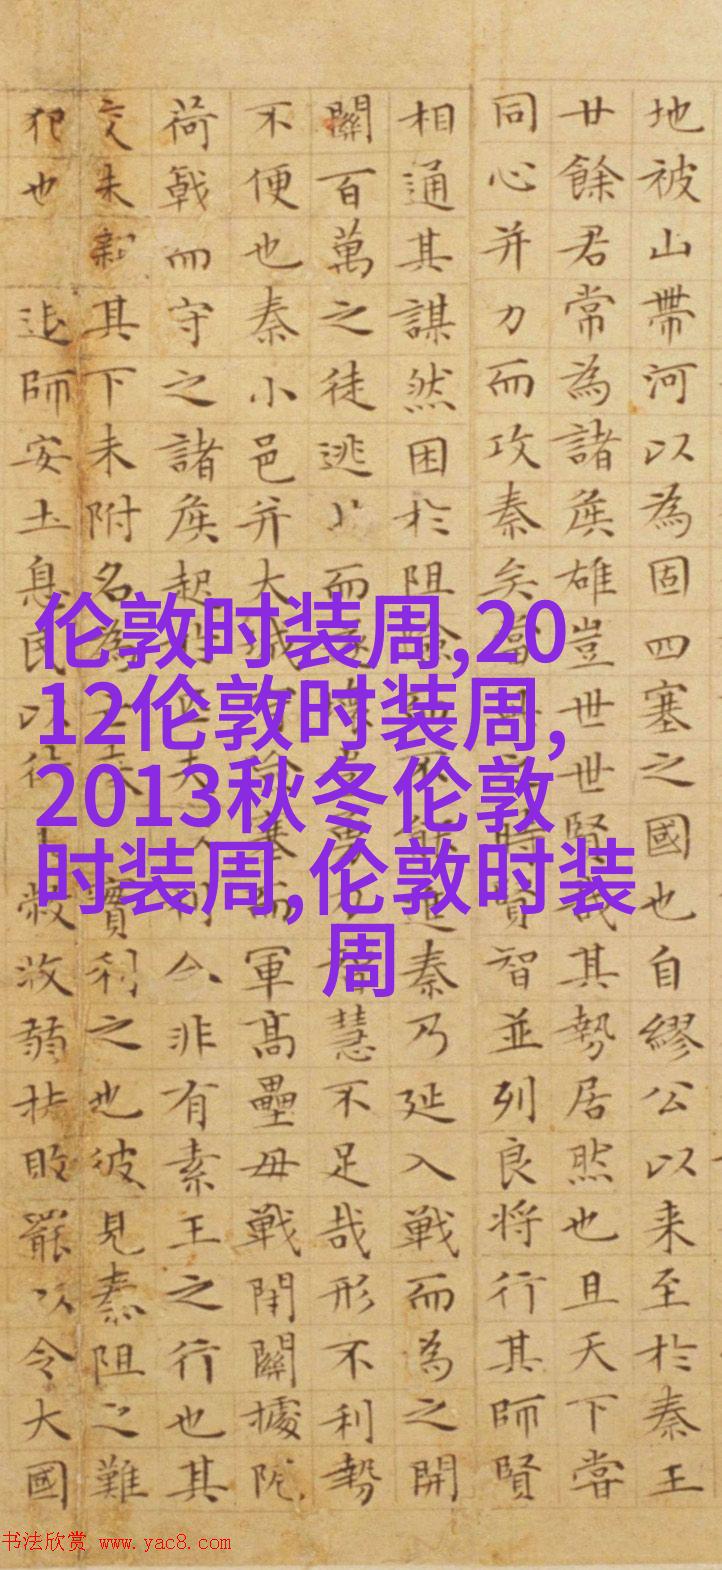 地被山帶河以為固四塞之國也自繆公以来至於秦王
廿餘君常為諸侯雄豈世世賢哉其勢居然也且天下甞
同心并力而攻秦矣當時賢智並列良将行其師賢
相通其謀然困於阻險不能進秦乃延入戦而為之開
關百萬之徒逃北而壞智慧不足哉形不利勢
不便也秦小邑并大城險塞而軍高壘毋戦閉關據阨
荷戟而守之諸侯起夫利合非有素王之行也其
交未親其下未附名為秦實利之也彼見秦阻之難
犯也 師安土息民以待敝收弱扶罷以令大國
伦敦时装周,20
12伦敦时装周,
2013秋冬伦敦
时装周,伦敦时装
周
书法欣赏 www.yac8.com